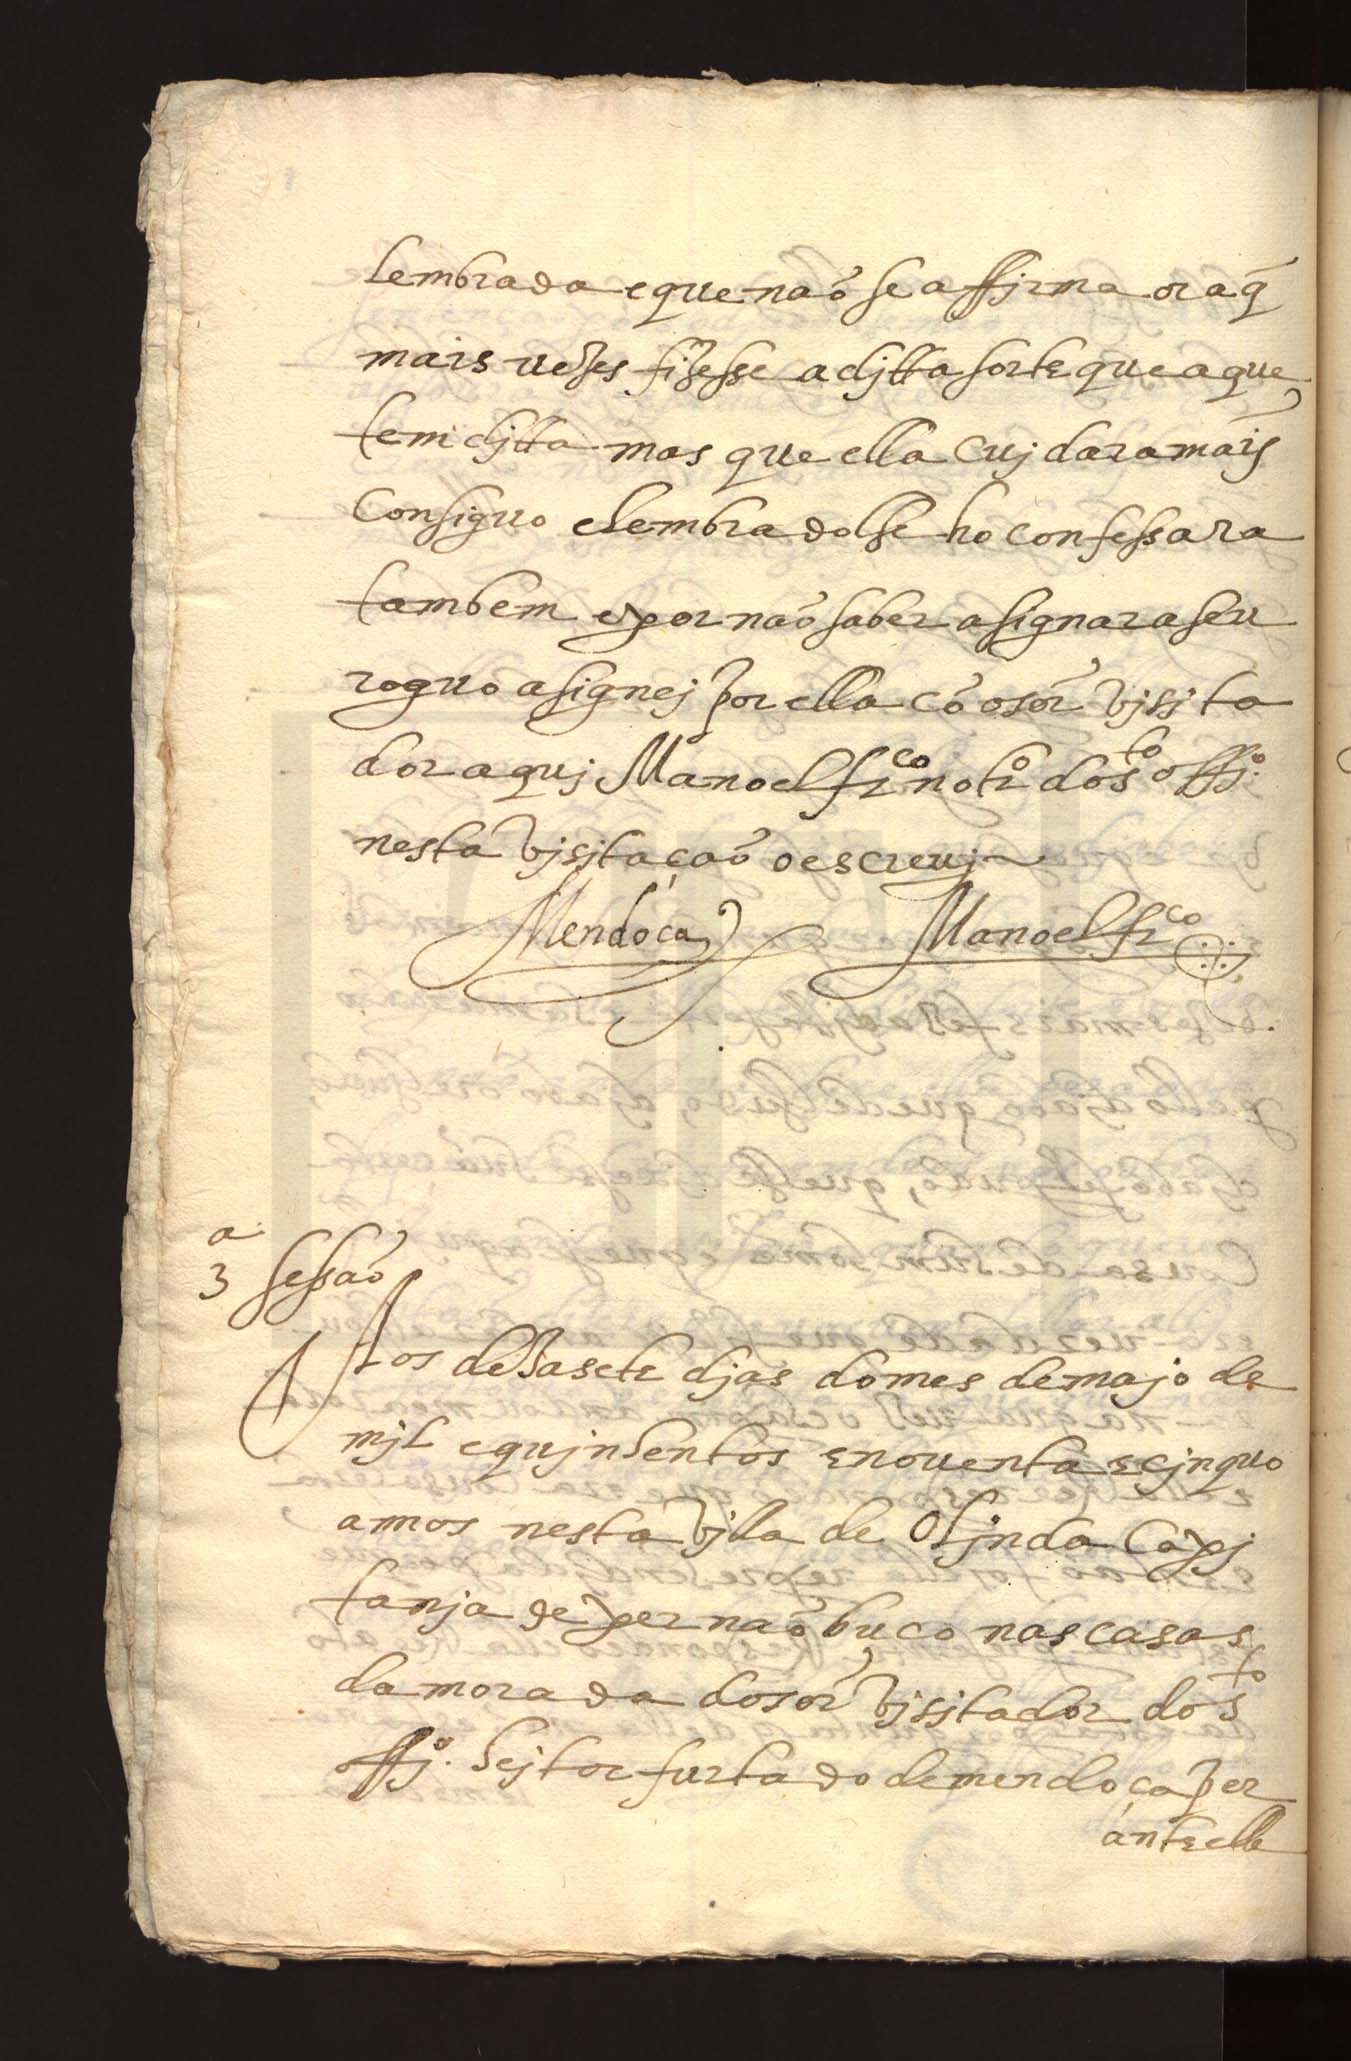 lembrada e que não se affirma ora q̃
mais uezes fizesse a djtta sorte que a que
tem djtta mas que ella cujdara mais
Consiguo e lembradolse ho confessara
tambem e por não saber asignar a seu
roguo asignej por ella cõ o sõr vjsita
dor aquj Manoel frco notro do sto offjo.
nesta vjsitação o escreuj
Mendoça Manoel frco
3a sessão
Aos dezasete djas do mes de majo de
mjl e qujnhentos e nouenta e cjnquo
annos nesta vjlla de Oljnda Capj
tanja de pernãobuco nas casas
da morada do sõr vjsitador do sto
offjo. hejtor furtado de mendoça per
ante elle